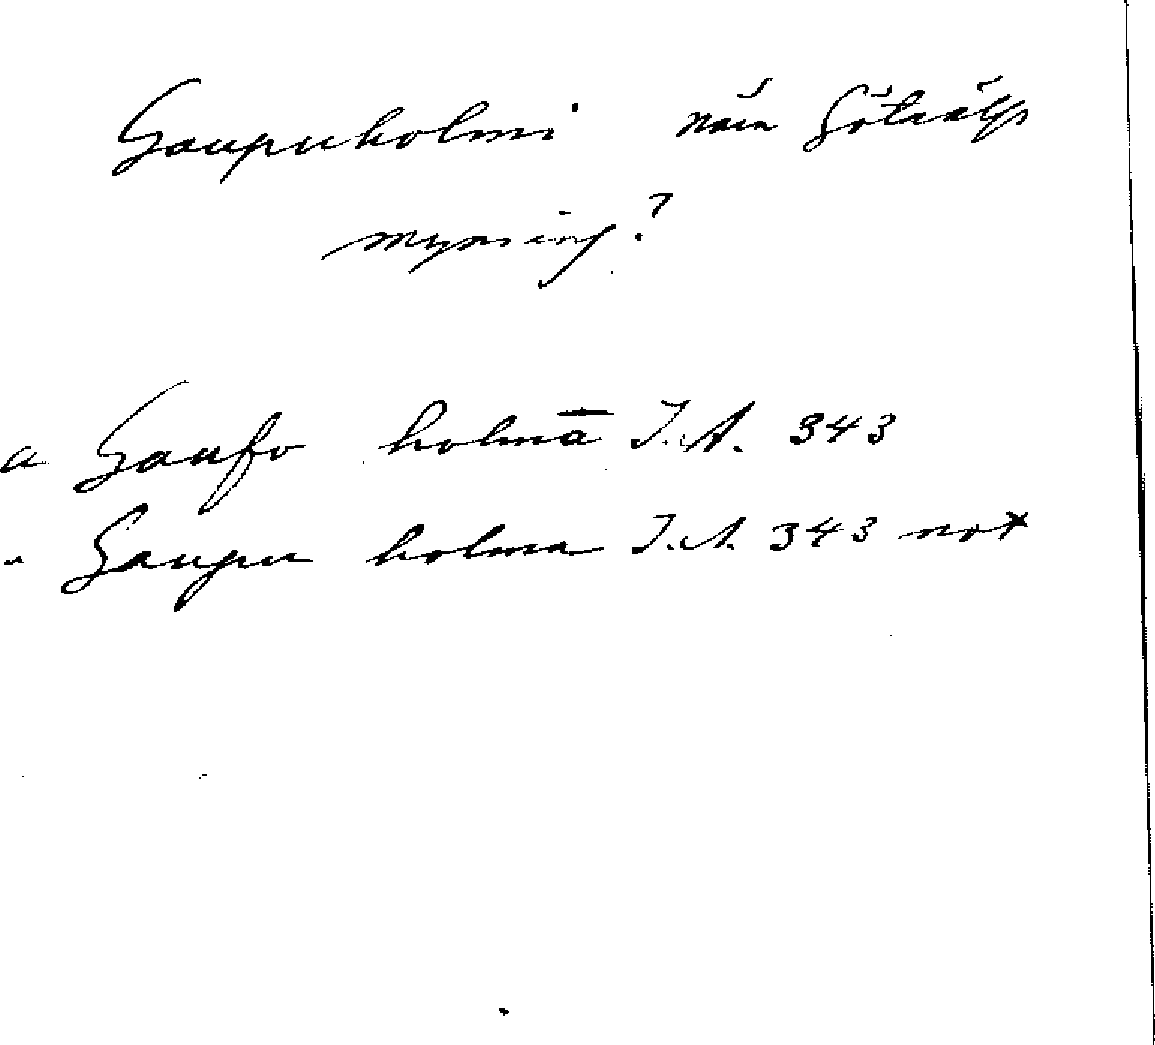 Gaupuholmi när Götaälfs
mynning?
a Gaufo holmā I.A. 343
" Gaupu holma I.A. 343 not